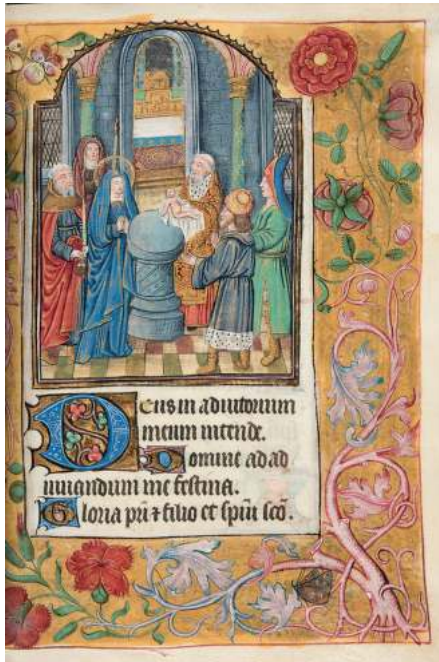 Deus in adiutorium
meum intende.
Domine ad ad
iuuandum me festina.
Gloria pr̃i ⁊ filio et sp̃ui sc̃o.